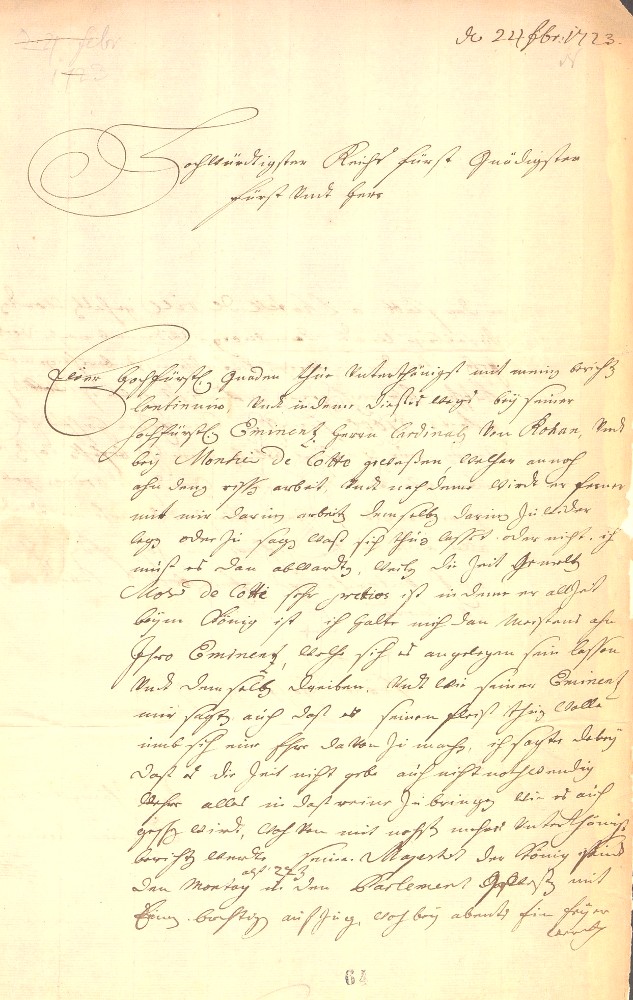 de 24 febr: 1723.
Hochwürdigster Reichs fürst Gnädigster
fürst undt herr
Euer hochfürstl. gnaden thue unterthänigst mit mein bericht
continuiren, undt in deme dieses wegs bey seiner
hochfürstl. Eminentz herrn Cardinal von Rohan, undt
bey Monsie de Cotto geweßen, welcher annoch
ahn dem riss arbeit, undt nach deme wirdt er ferner
mit mir darin arbeiten demselben darin zu
legen oder zu sagen waß sich thun lasset oder nicht, ich
muß es dan abwarten, weilen die Zeit
Mons de Cotte sehr pretios ist in deme er allzeit
beym König ist ich halte mich dan meistens ahn
Ihro Eminentz, welche sich es angelegen sein lassen
undt demselben treiben, undt wie seiner Eminentz
mir sagten auch daß er seinen fleiß thun wolle
umb sich eine Ehre davon zu machen, ich sagte dabey
daß es die Zeit nicht gebe auch nicht nothwendig
wehre alles in daß reine zu bringen wie es auch
wirdt, von mit nechst mehres unterthänigst
berichten werde seine Majestet der König seindt
den Montag in den Parlement geweßen mit
einem auffzug, wobey abents ein feyer
64